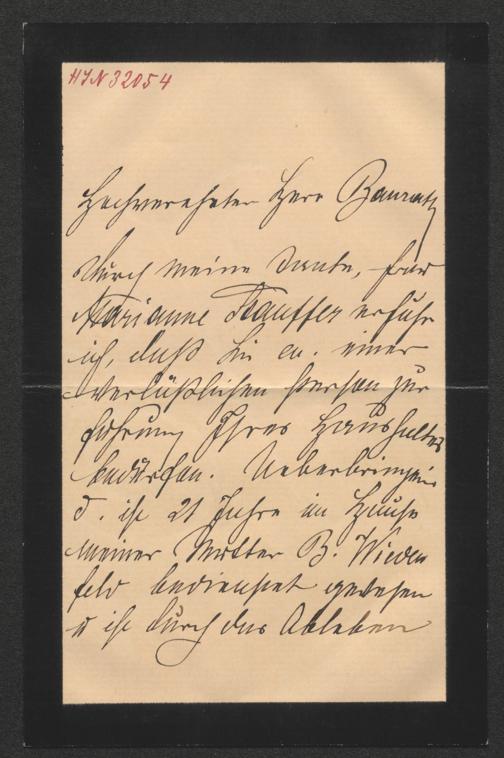 HIN 32054
Hochverehrter Herr Baurath
Durch meine Tante, Frau
Marianne Kauffer erfuhr
ich, daß Sie ev. einer
verläßlichen Person zur
Führung Ihres Haushaltes
bedürfen. Ueberbringerin
d. ist 21 Jahre im Hause
meiner Mutter B. Wieden
feld bedienstet gewesen
u ist durch das Ableben